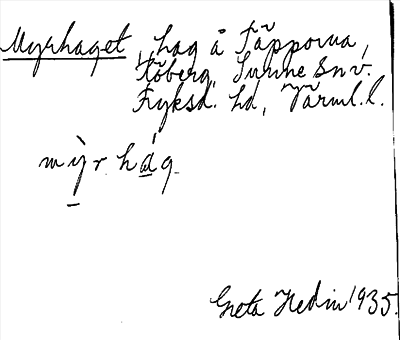 Myrhaget, hag å Täpporna,
Töberg, Sunne Sn v.
Fryksd. hd, Värml. l.
mỳr hág.
Greta Hedin 1935.